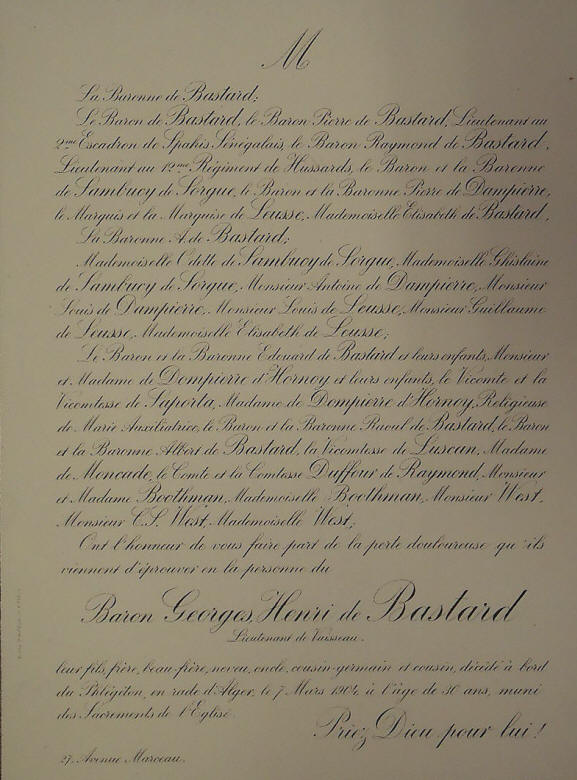 M
La Baronne de Bastard;
Le Baron de Bastard, le Baron Pierre de Bastard, Lieutenant au
2me Escadron de Spahis Sénégalais, le Baron Raymond de Bastard,
Lieutenant au 12me Régiment de Hussards, le Baron et la Baronne
de Sambucy de Sorgue, le Baron et la Baronne Pierre de Dampierre,
le Marquis et la Marquise de Leusse, Mademoiselle Elisabeth de Bastard,
La Baronne A. de Bastard;
Mademoiselle Odette de Sambucy de Sorgue, Mademoiselle Ghislaine
de Sambucy de Sorgue, Monsieur Antoine de Dampierre, Monsieur
Louis de Dampierre, Monsieur Louis de Leusse, Monsieur Guillaume
de Leusse, Mademoiselle Elisabeth de Leusse;
Le Baron et la Baronne Edouard de Bastard et leurs enfants, Monsieur
et Madame de Dompierre d'Hornoy et leurs enfants, le Vicomte et la
Vicomtesse de Saporta, Madame de Dompierre d'Hornoy, Religieuse
de Marie Auxiliatrice, le Baron et la Baronne Raoul de Bastard, le Baron
et la Baronne Albert de Bastard, la Vicomtesse de Luscan, Madame
de Moncade, le Comte et la Comtesse Duffour de Raymond, Monsieur
et Madame Boothman, Mademoiselle Boothman, Monsieur West,
Monsieur C.S. West, Mademoiselle West;
Ont l'honneur de vous faire part de la perte douloureuse qu'ils
viennent d'éprouver en la personne du
Baron Georges, Henri de Bastard
Lieutenant de Vaisseau.
leur fils, frère, beau-frère, neveu, oncle, cousin-germain et cousin, décédé à bord
du Phlégéton, en rade d'Alger, le 7 Mars 1904, à l'âge de 30 ans, muni
des Sacrements de l'Eglise.
Priez Dieu pour lui !
27, Avenue Marceau.